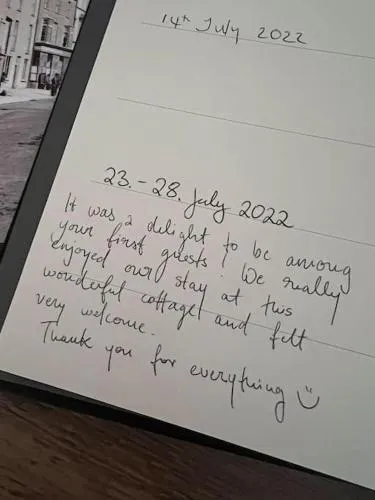 14th July 2022
23. - 28. July 2022
It was a delight to be among
your first guests! We really
enjoyed our stay at this
wonderful cottage and felt
very welcome.
Thank you for everything :)